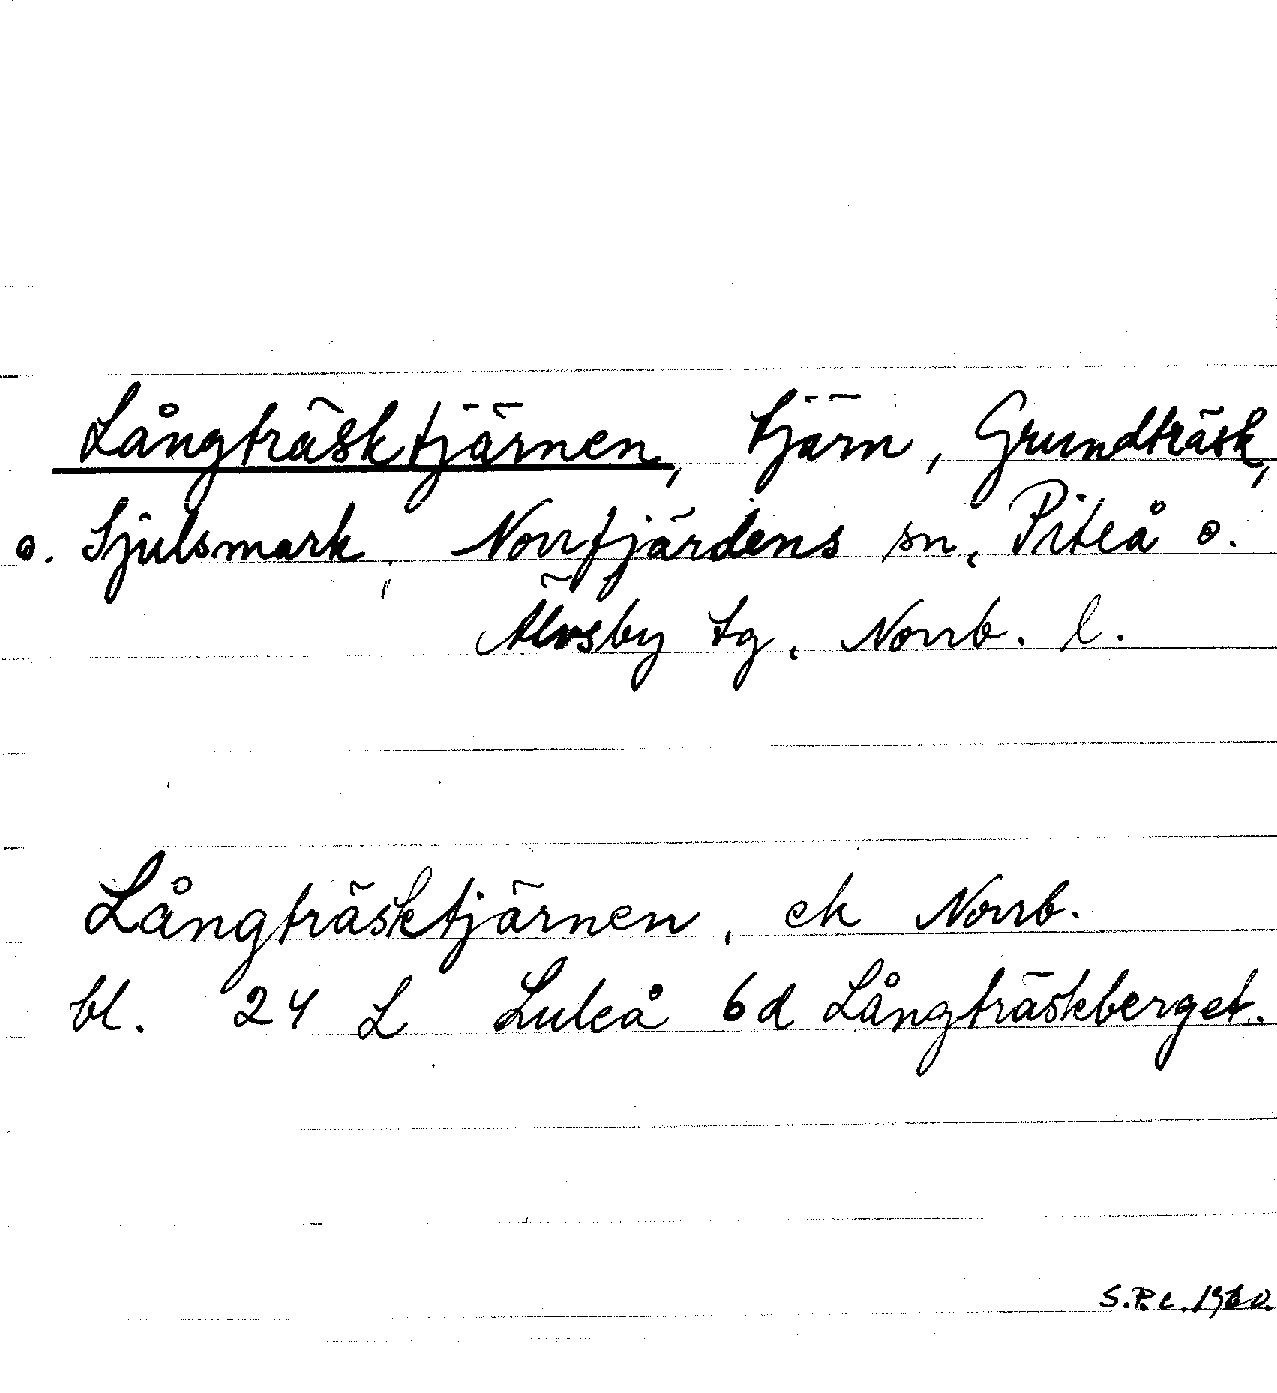 Långträsktjärnen, tjärn, Grundträsk,
o. Sjulsmark, Norrfjärdens sn, Piteå o.
Älvsby tg, Norrb. l.
Långträsktjärnen, ek Norrb.
bl. 24 L Luleå 6d Långträskberget.
S.P.C. 1960